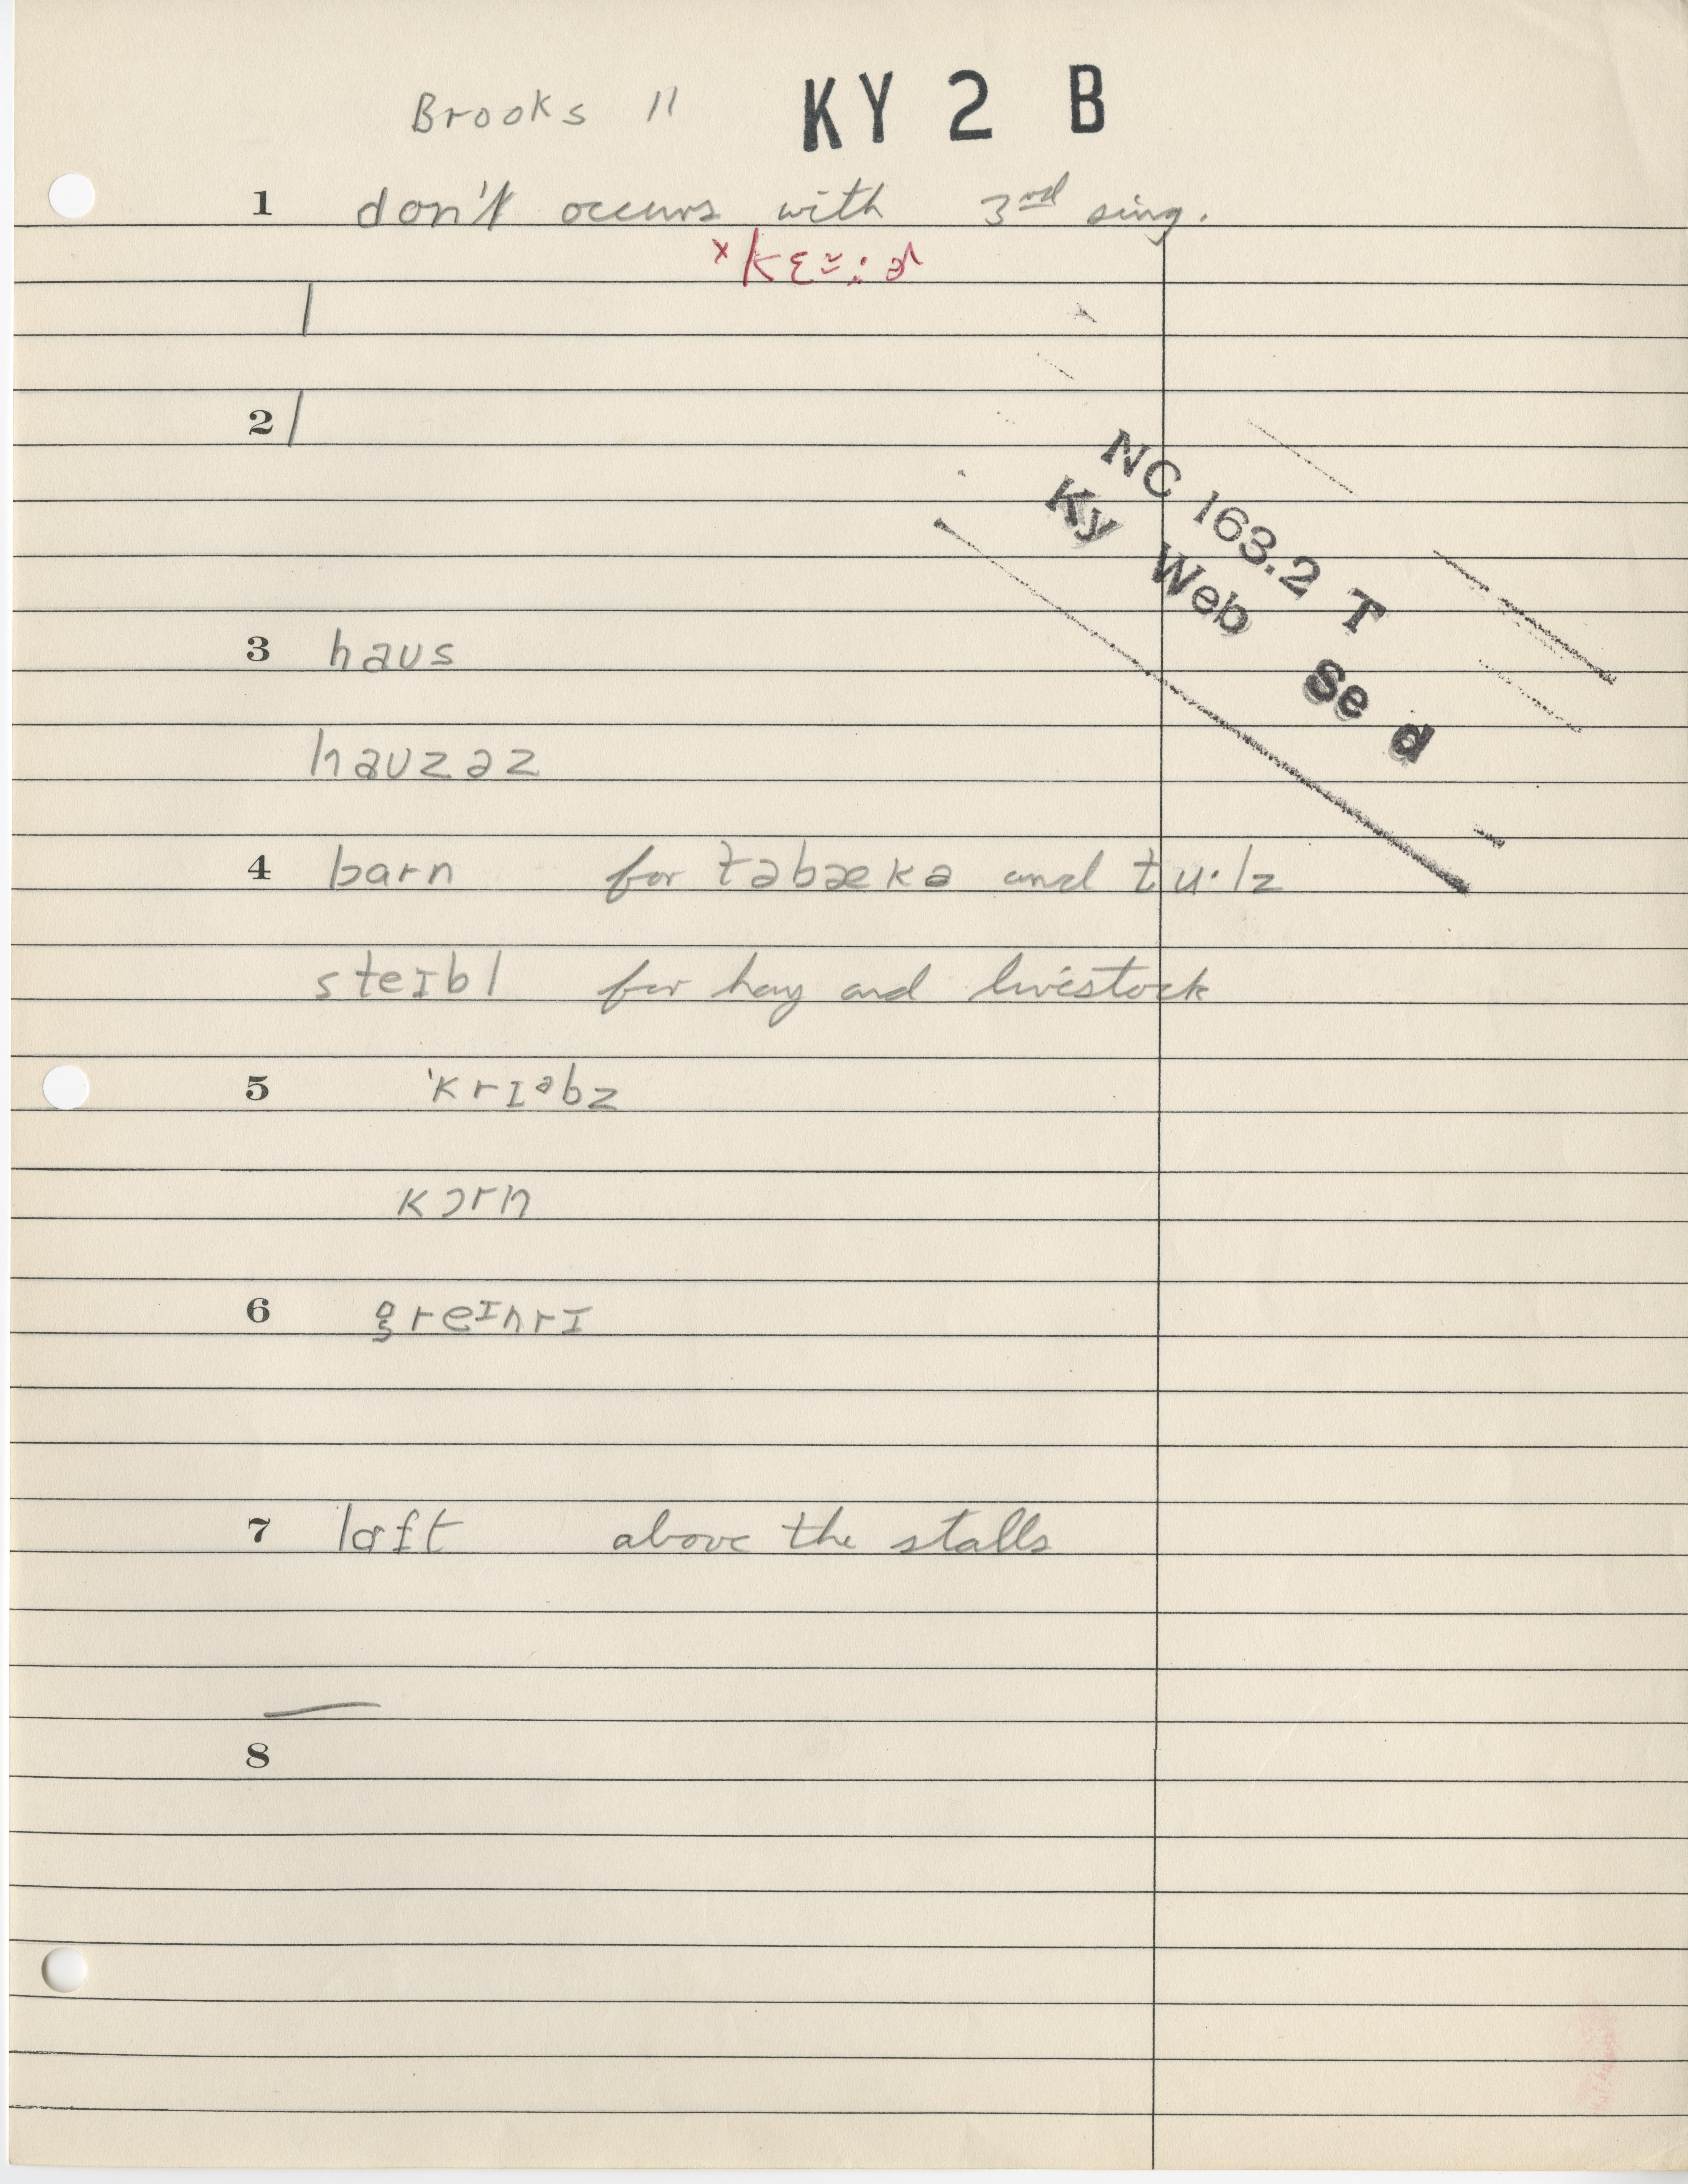 Brooks 11 KY 2 B
1 don't occurs with 3rd sing.
2
NC 163.2 T
Ky Web Se d
3 haus
hauzəz
4 barn for təbækə and tu·lz
steɪbl for hay and livestock
5 'krɪᵊbz
kɔrn
6 greᴵnrɪ
7 lɑft above the stalls
8